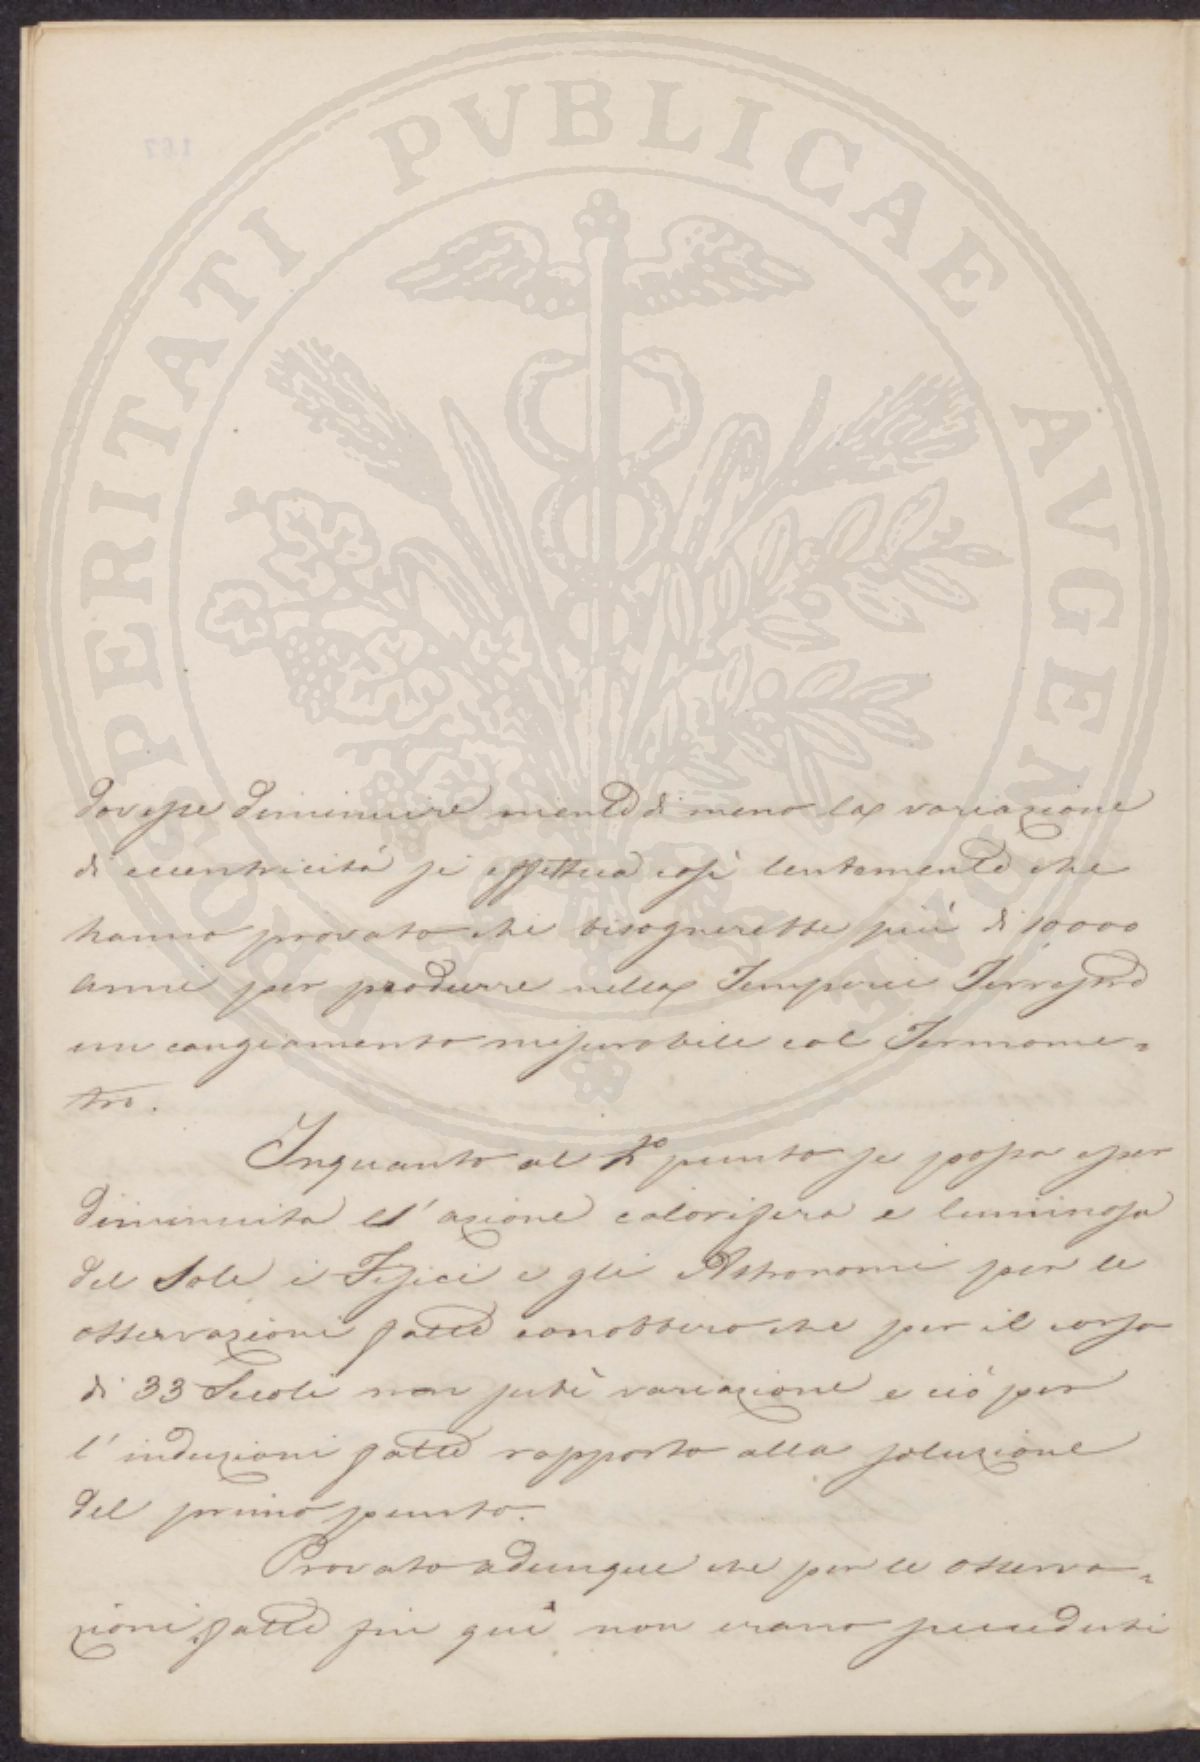 PROSPERITATI PUBLICAE AVGENDAE
dovesse diminuire niente di meno la variazione
di eccentricità si effettua così lentamente che
hanno provato che bisognerebbe più di 10000
anni per produrre nella Temperie Terrestre
un cangiamento misurabile col Termome=
tro.
Inquanto al 2º punto se possa esser
diminuita l'azione calorifera e luminosa
del Sole i Fisici e gli Astronomi per le
osservazioni fatte conobbero che per il corso
di 33 Secoli non subì variazione e ciò per
l'induzioni fatte rapporto alla soluzione
del primo punto.
Provato adunque che per le osserva=
zioni fatte fin quì non erano succeduti